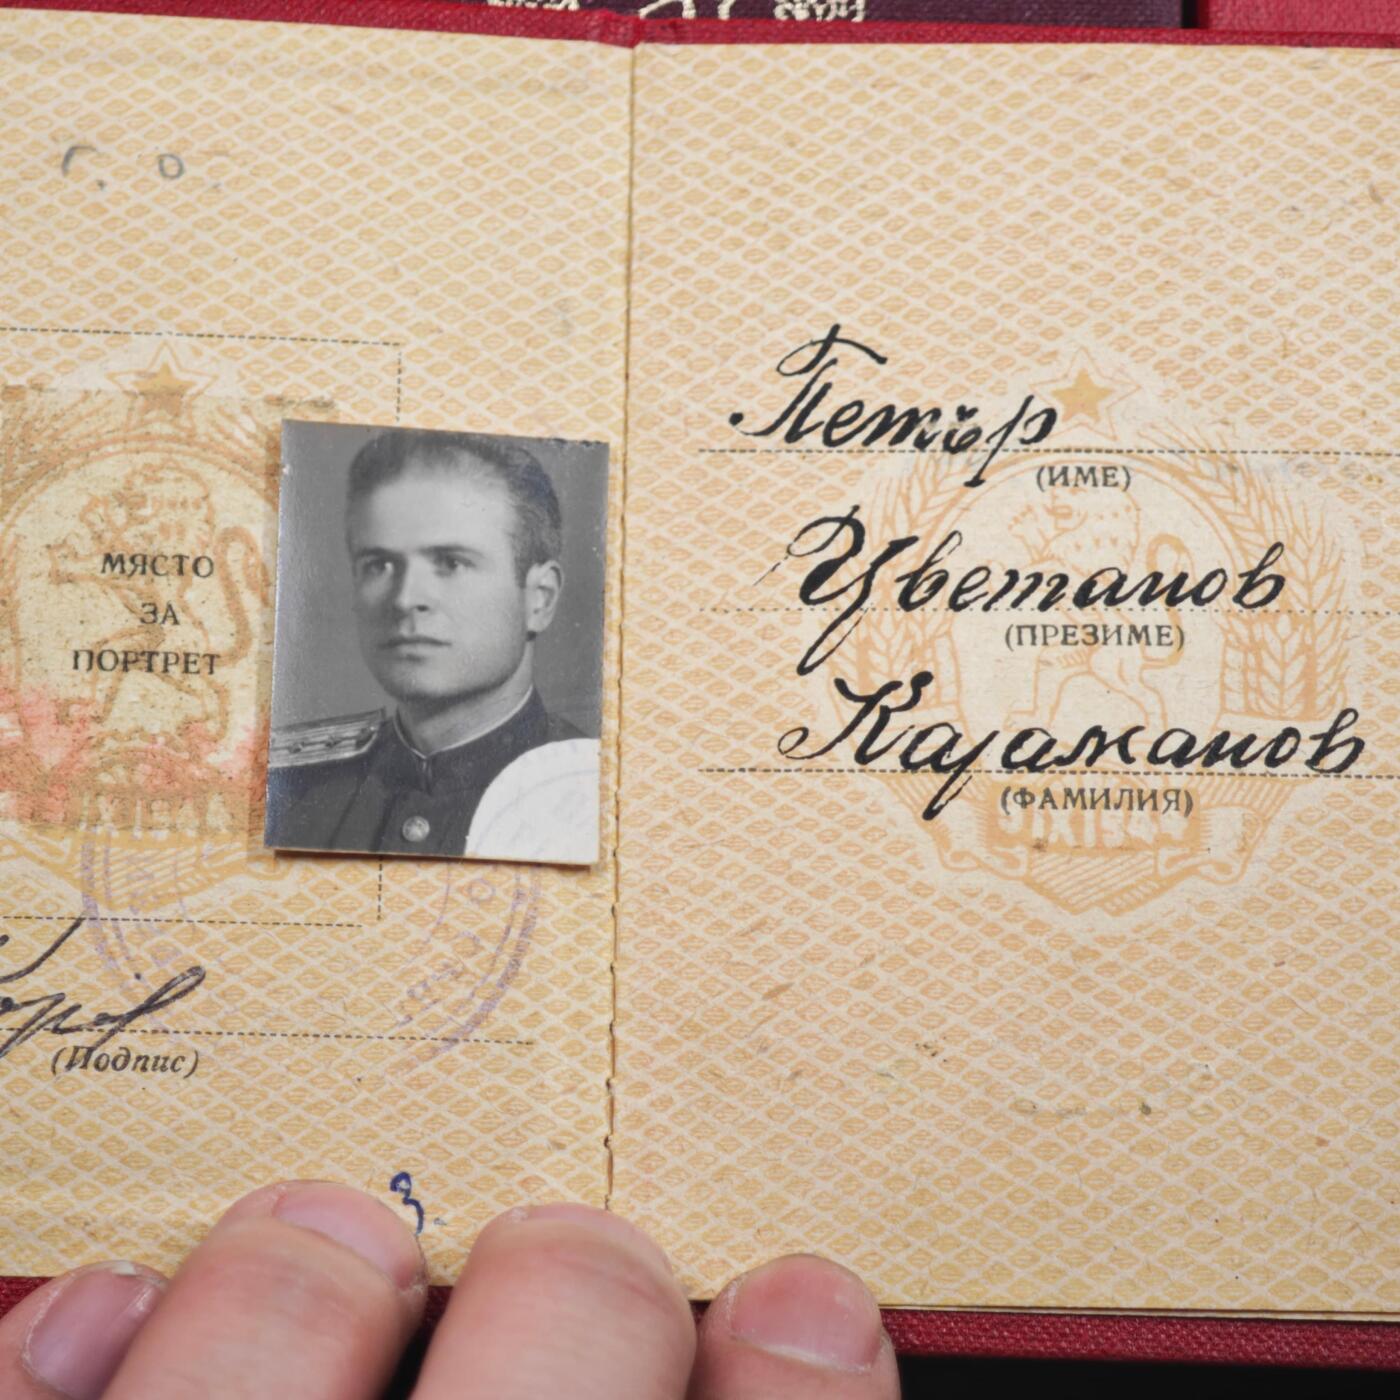 Г. О.
МЯСТО
ЗА
ПОРТРЕТ
(Подпис)
3.
Петър
(ИМЕ)
Цветанов
(ПРЕЗИМЕ)
Каражанов
(ФАМИЛИЯ)
9.IX.1944